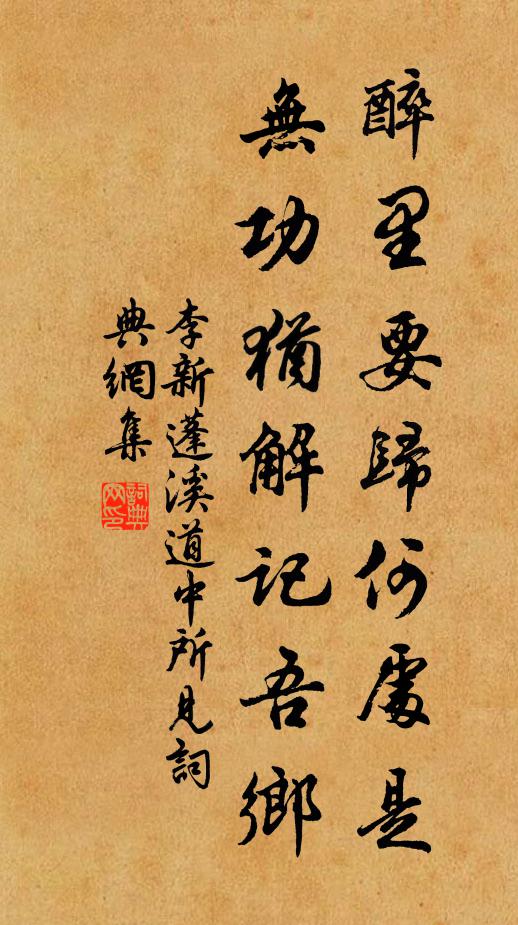 醉里要歸何處是
無功猶解記吾鄉
李新蓬溪道中所見詞
典網集
詞典網印